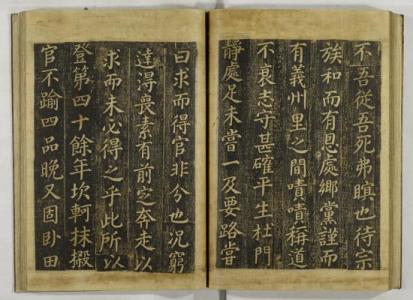 不吾從吾死弗瞑也待宗
族和而有恩處鄉黨謹而
有義州里之間嘖嘖稱道
不衰志守甚確平生杜門
靜處足未嘗一及要路嘗
曰求而得官非分也況窮
達淂喪素有前定奔走以
求而未必得之乎此所以
登第四十餘年坎軻抹摋
官不踰四品晚又固卧田